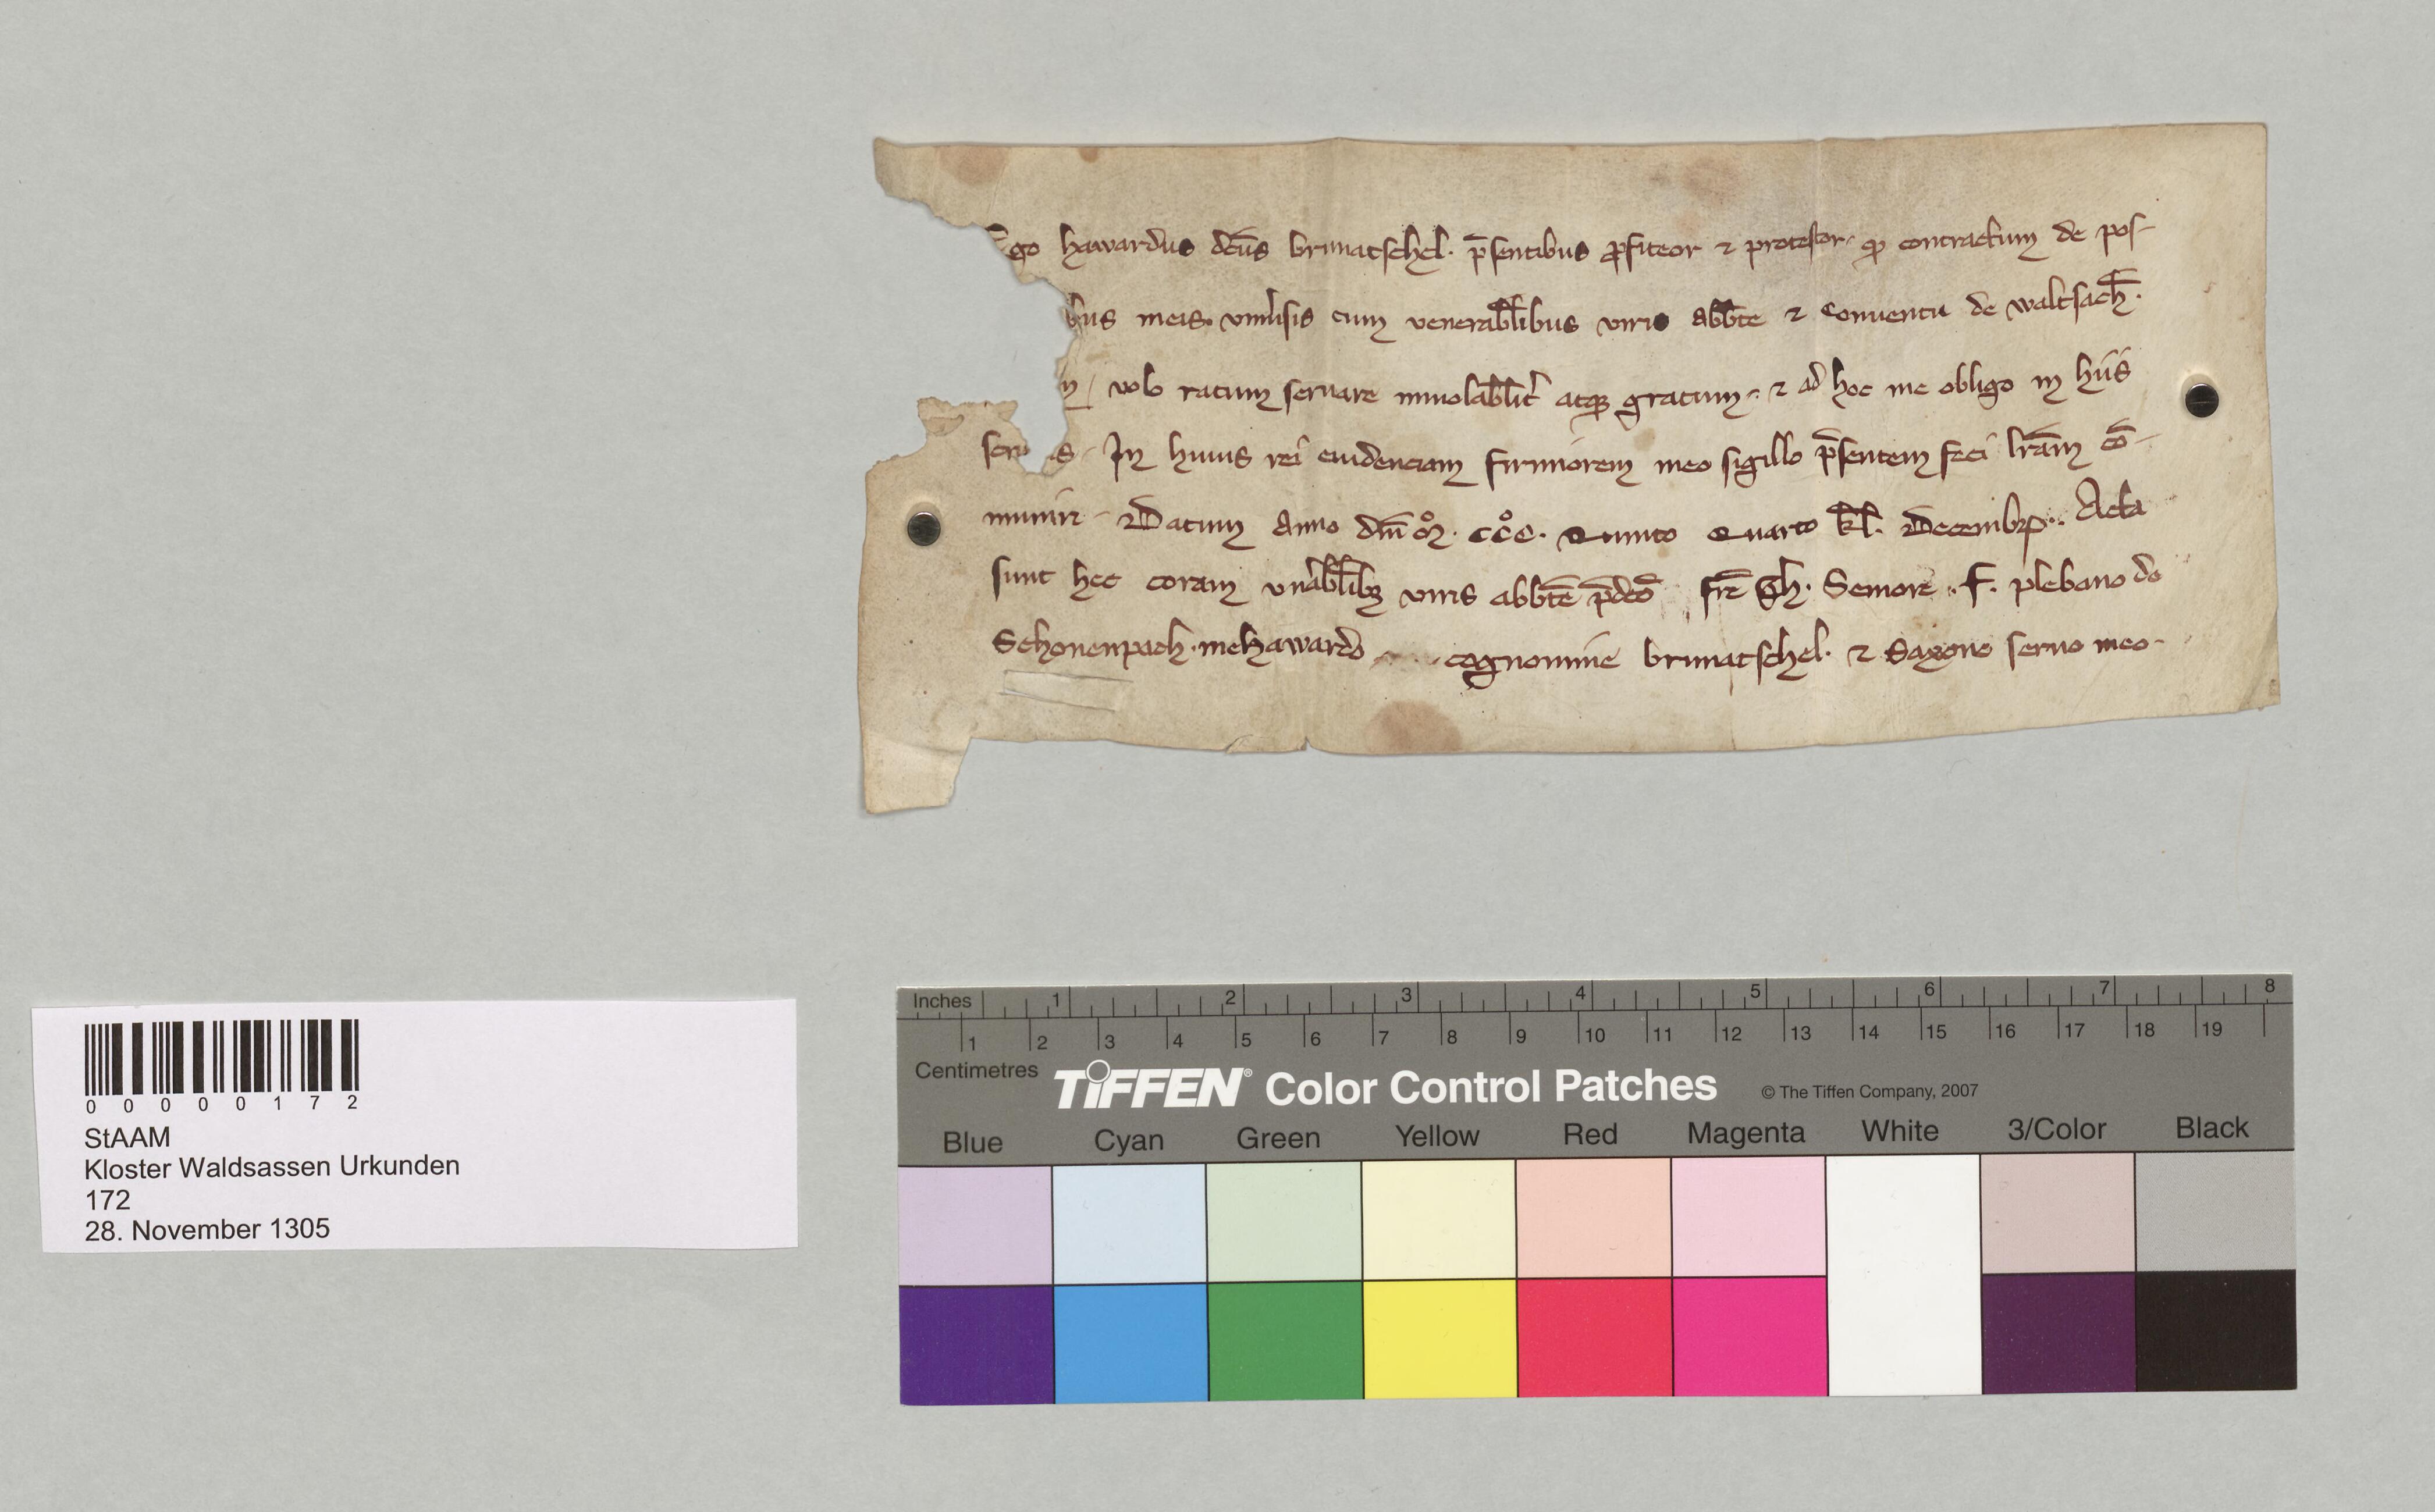 Ego hawardus dc̄us brunatschel. p̄sentibus ꝓfiteor ⁊ protestor. ꝙ contractum de pos-
bus meis. vniu'sis cum venerabl̄ibus viris abb̄te ⁊ Conuentu de waltsach̄.
volo ratum seruare inuiolabl̄it' atqꝫ gratum. ⁊ ad hoc me obligo in hiis
In huius rei euidenciam firmiorem meo sigillo p̄sentem feci lr̄am cō-
munir Datum Anno dn̄i oͦꝫ. CCͦC. Quinto Quarto kl̄. Decembr. Acta
sunt hec coram vn̄abl̄ibꝫ viris abbt̄e p̄dc̄o fr̄e Gh. Seniore .F. plebano de
Schonenpach. me hawardo cognomine brunatschel. ⁊ Saxono seruo meo.
Inches 1 2 3 4 5 6 7 8
1 2 3 4 5 6 7 8 9 10 11 12 13 14 15 16 17 18 19
Centimetres
TIFFEN® Color Control Patches © The Tiffen Company, 2007
Blue Cyan Green Yellow Red Magenta White 3/Color Black
0 0 0 0 0 1 7 2
StAAM
Kloster Waldsassen Urkunden
172
28. November 1305